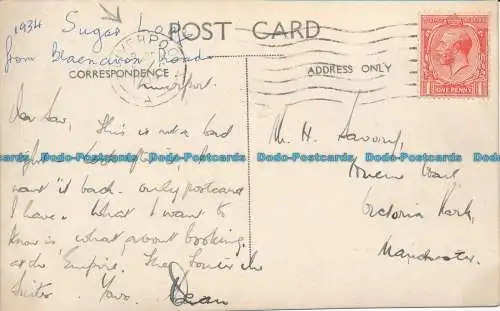 1934 Sugar Loaf
from Blaenavon Road
POST CARD
CORRESPONDENCE
ADDRESS ONLY
LIVERPOOL
A
ONE PENNY
Liverpool.
Dear Sav, This is not a bad
want it back. only postcard
I have. What I want to
know is, what about booking
at the Empire. The
Yours Dean
Mr. H. Savory,
Victoria Park,
Manchester.
Dodo-Postcards Dodo-Postcards Dodo-Postcards Dodo-Postcards Dodo-Postcards